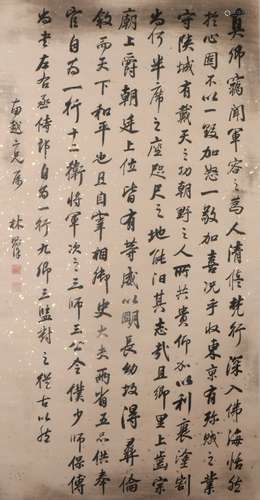 真卿竊聞軍容之為人清修梵行深入佛海恬然
於心固不以一毀加怒一敬加喜況乎收東京有殄賊之業
守陝城有戴天之功朝野之人所共貴仰加以利衰塗割
尚何半席之座咫尺之地能汩其志哉且鄉里上齒宗
廟上爵朝廷上位皆有等威以明長幼故得彝倫
敘而天下和平也且自宰相御史大夫兩省五品供奉
官自為一行十二衛將軍次之三師三公令僕少師保傅
尚書左右丞侍郎自為一行九卿三監對之從古以然
南越兄屬 林則徐